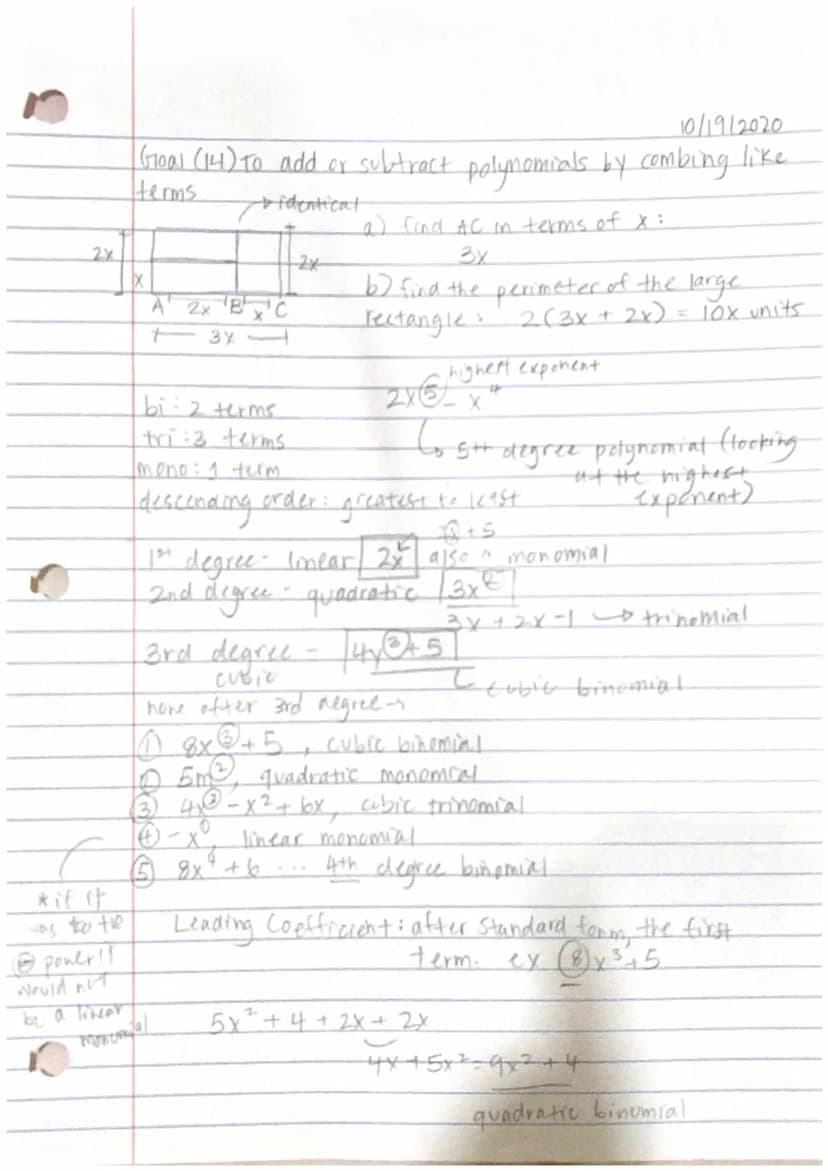 10/19/2020
Goal (14) To add or subtract polynomials by combing like
terms
identical
a) find AC in terms of x:
2x
2x
3x
x
b) find the perimeter of the large
A 2x B x C
rectangle: 2(3x + 2x) = 10x units
3x
highest exponent
2x⑤ - x⁴
bi: 2 terms
tri: 3 terms
5th degree polynomial (looking
mono: 1 term
at the highest
exponent)
descending order: greatest to least
+ 5
1st degree - linear 2x also a monomial
2nd degree - quadratic 3x²
3x + 2x - 1 → trinomial
3rd degree - 4y③ + 5
cubic
cubic binomial
none after 3rd degree →
① 8x③ + 5, cubic binomial
② 5m②, quadratic monomial
③ 4x③ - x² + 6x, cubic trinomial
④ - x, linear monomial
⑤ 8x⁴ + 6 ... 4th degree binomial
* if it
was to the
power it
would not
be a linear
monomial
Leading Coefficient: after standard form, the first
term. ex ⑧x³ + 5
5x² + 4 + 2x + 2x
4x + 5x² = 9x² + 4
quadratic binomial